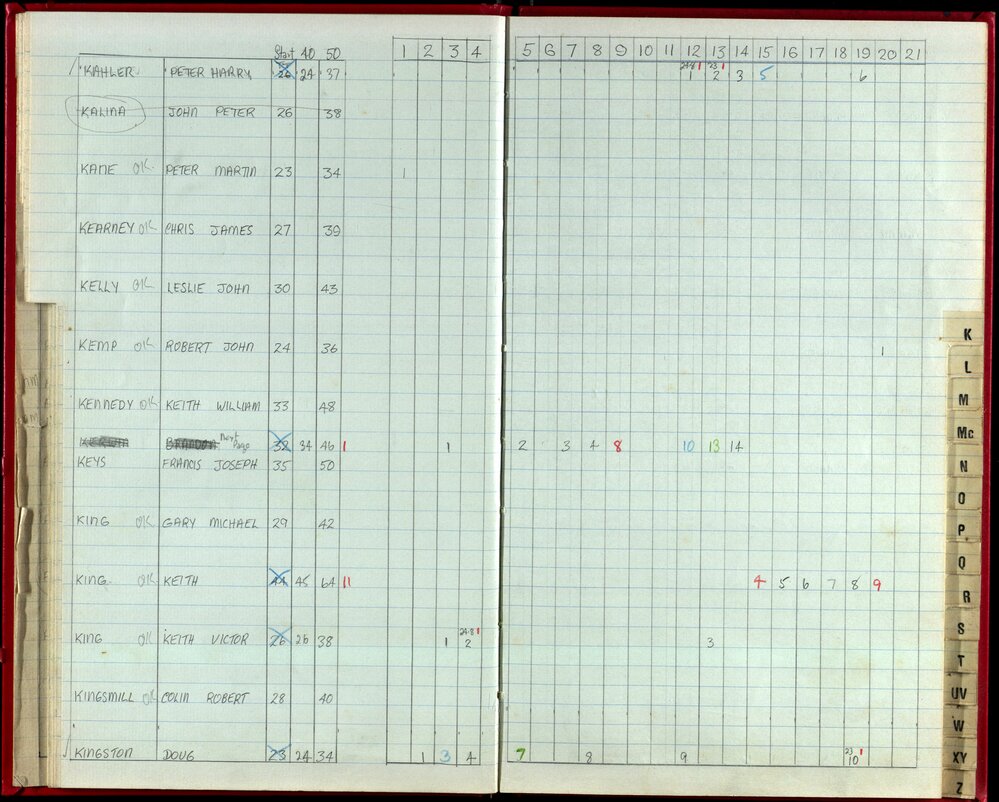 Start 40 50 1 2 3 4 5 6 7 8 9 10 11 12 13 14 15 16 17 18 19 20 21
KAHLER PETER HARRY 26 24 37 24·8 1 1 23 1 2 3 5 6
KALINA JOHN PETER 26 38
KANE OK PETER MARTIN 23 34 1
KEARNEY OK CHRIS JAMES 27 39
KELLY OK LESLIE JOHN 30 43
KEMP OK ROBERT JOHN 24 36 1
KENNEDY OK KEITH WILLIAM 33 48
Next Page 32 34 46 1 1 2 3 4 8 10 13 14
KEYS FRANCIS JOSEPH 35 50
KING OK GARY MICHAEL 29 42
KING OK KEITH 44 45 64 11 4 5 6 7 8 9
KING OK KEITH VICTOR 26 26 38 1 24·8 1 2 3
KINGSMILL OK COLIN ROBERT 28 40
KINGSTON DOUG 23 24 34 1 3 4 7 8 9 23 1 10
K
L
M
Mc
N
O
P
Q
R
S
T
UV
W
XY
Z